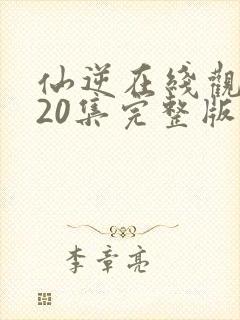 仙逆在綫觀
20集完整版
李章亮